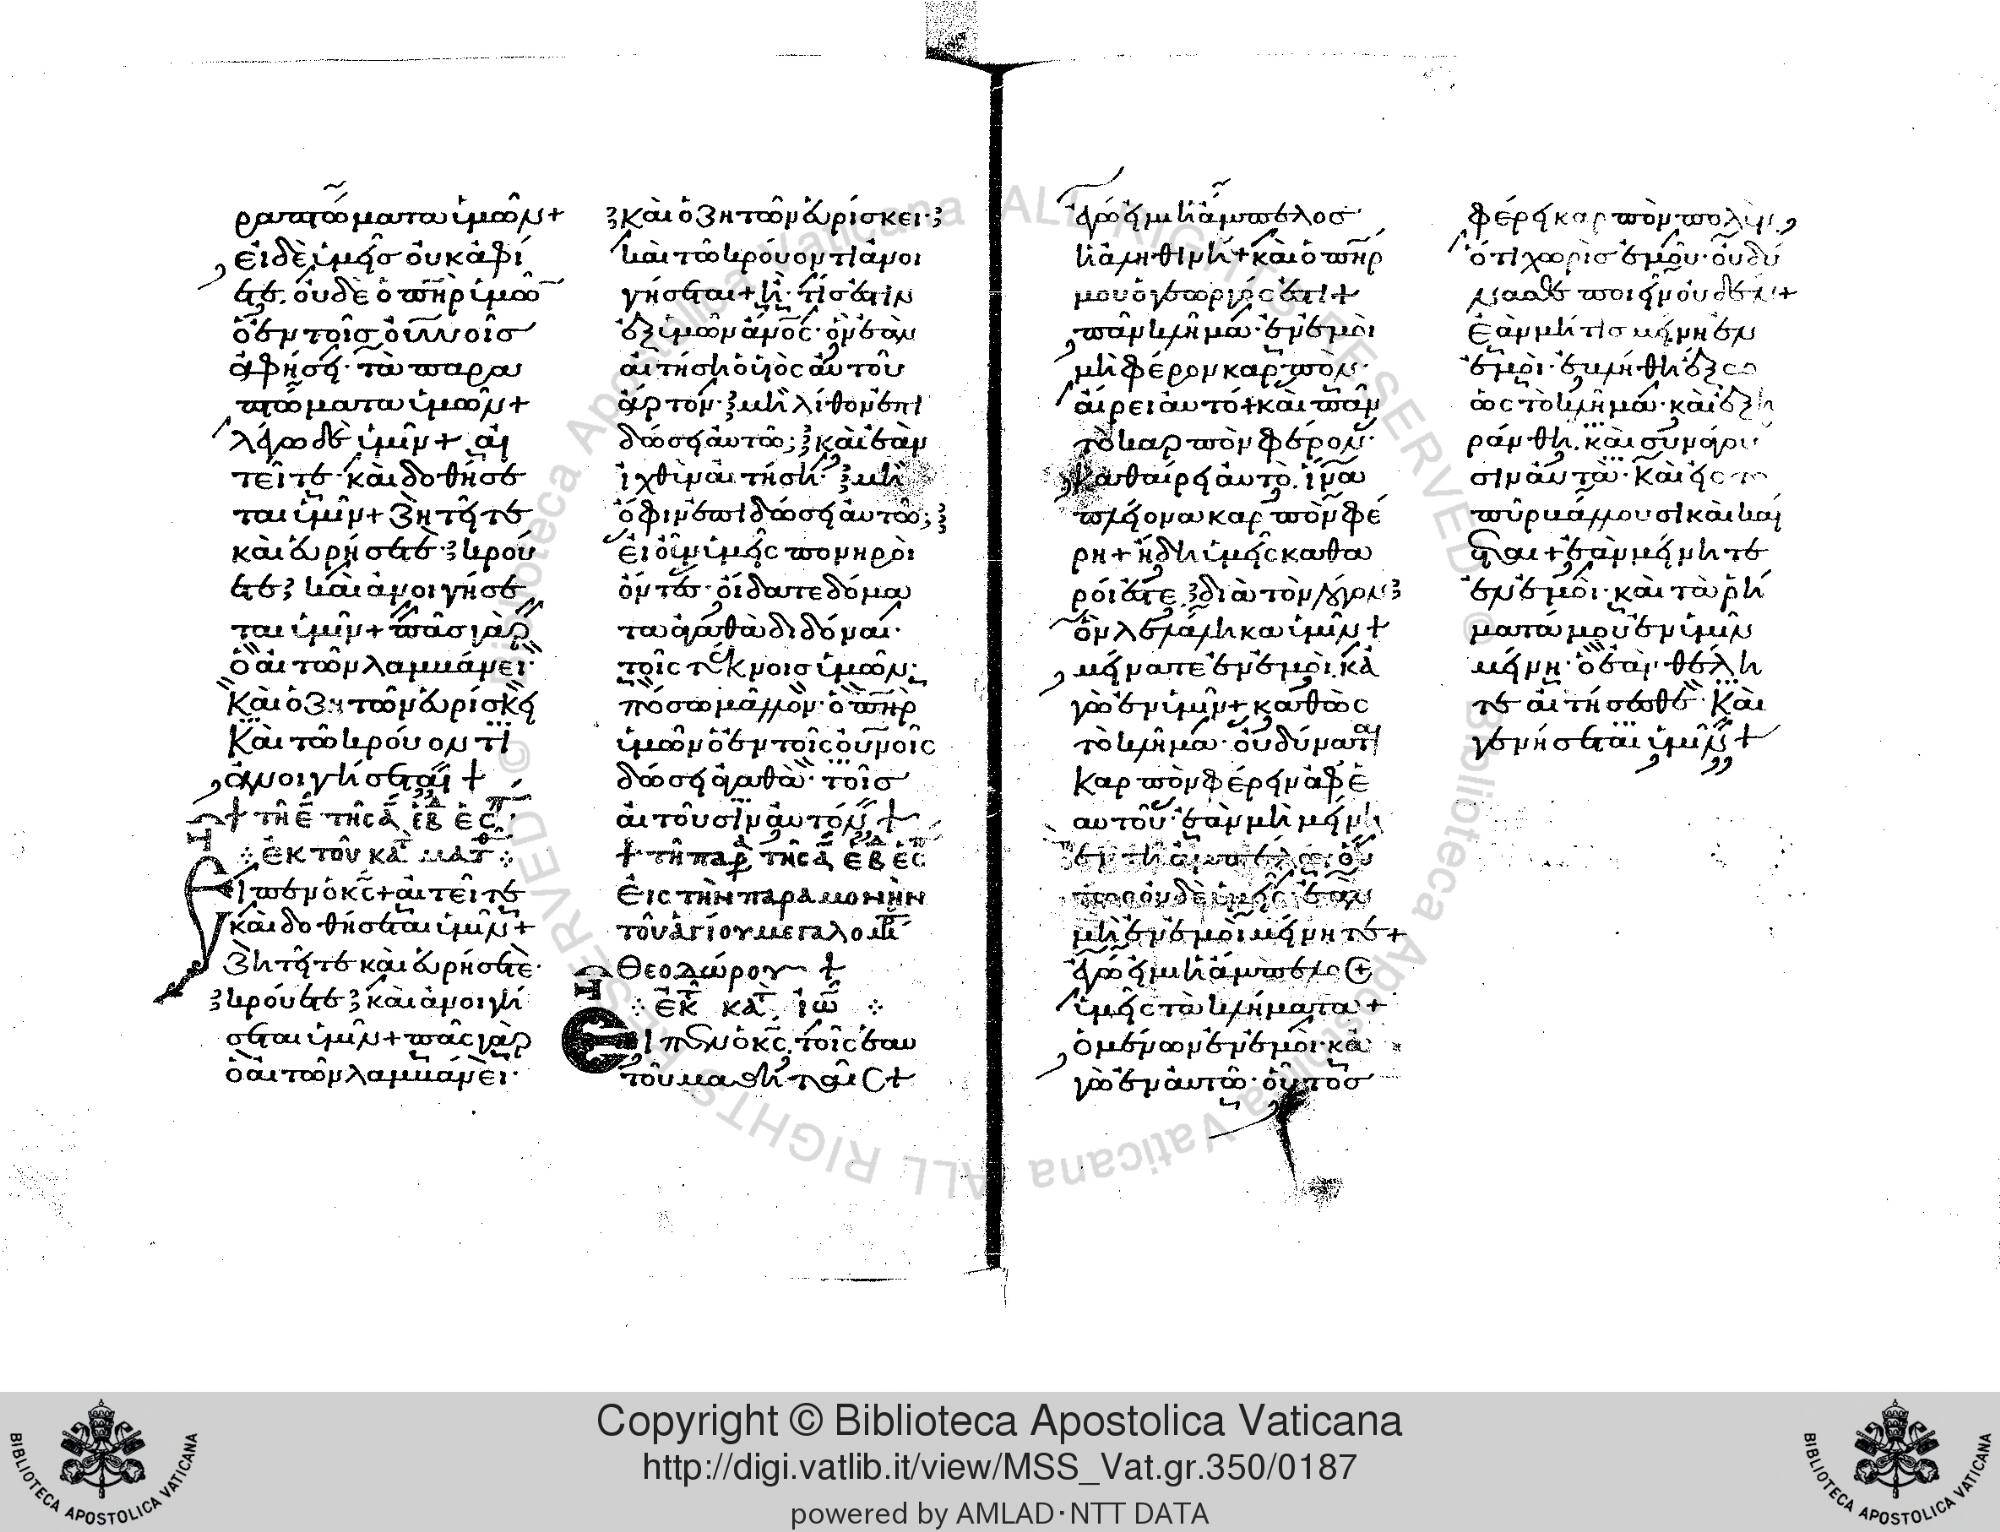 ραπτώματα ὑμῶν+
εἰ δὲ ὑμεῖς οὐκ ἀφί
ετε. οὐδὲ ὁ πηρ ὑμῶ
ὁ ἐν τοῖς οὐνοῖς
ἀφήσει· τὰ παρα
πτώματα ὑμῶν+
λέγω δὲ ὑμῖν+ αἰ
τεῖτε· καὶ δοθήσε
ται ὑμῖν+ ζητεῖτε
καὶ εὑρήσετε· κρού
ετε καὶ ἀνοιγήσε
ται ὑμῖν+ πᾶς γὰρ
ὁ αἰτῶν λαμβάνει·
καὶ ὁ ζητῶν εὑρίσκει
καὶ τῶ κρούοντι
ἀνοιγήσεται +
+ τῆ ε τῆς α εβ ες
ἐκ τοῦ κατ ματ
Εἶπεν ὁ κς+ αἰτεῖτε
καὶ δοθήσεται ὑμῖν+
ζητεῖτε καὶ εὑρήσετε·
κρούετε καὶ ἀνοιγή
σεται ὑμῖν+ πᾶς γὰρ
ὁ αἰτῶν λαμβάνει·
καὶ ὁ ζητῶν εὑρίσκει·
καὶ τῶ κρούοντι ἀνοι
γήσεται+ ἢ· τίς ἐστιν
ἐξ ὑμῶν ἀνος· ὃν ἐὰν
αἰτήση ὁ υἱὸς αὐτοῦ
ἄρτον· μὴ λίθον ἐπι
δώσει αὐτῶ; καὶ ἐὰν
ἰχθὺν αἰτήση· μὴ
ὄφιν ἐπιδώσει αὐτῶ;
εἰ οὖν ὑμεῖς πονηροὶ
ὄντες· οἴδατε δόμα
τα ἀγαθὰ διδόναι·
τοῖς τέκνοις ὑμῶν·
πόσω μᾶλλον· ὁ πηρ
ὑμῶν ὁ ἐν τοῖς οὐνοῖς
δώσει ἀγαθὰ· τοῖς
αἰτοῦσιν αὐτόν +
+ τῆ παρ τῆς α εβ ες
Εἰς τὴν παραμονὴν
τοῦ ἁγίου μεγαλομ
Θεοδώρου +
ἐκ κατ ἰω
Εἶπεν ὁ κς. τοῖς ἑαυ
τοῦ μαθηταῖς+
ἐγώ εἰμι ἡ ἄμπελος
ἡ ἀληθινή+ καὶ ὁ πηρ
μου ὁ γεωργός ἐστι+
πᾶν κλῆμα· ἐν ἐμοὶ
μὴ φέρον καρπὸν·
αἴρει αὐτό+ καὶ πᾶν
τὸ καρπὸν φέρον·
καθαίρει αὐτὸ. ἵνα
πλείονα καρπὸν φέ
ρη+ ἤδη ὑμεῖς καθα
ροί ἐστε διὰ τὸν λόγον
ὃν λελάληκα ὑμῖν+
μείνατε ἐν ἐμοὶ. κἀ
γὼ ἐν ὑμῖν+ καθὼς
τὸ κλῆμα· οὐ δύναται
καρπὸν φέρειν ἀφ ἑ
αυτοῦ· ἐὰν μὴ μείνη
ἐν τῆ ἀμπέλω· οὕ
τως οὐδὲ ὑμεῖς· ἐὰν
μὴ ἐν ἐμοὶ μείνητε+
ἐγώ εἰμι ἡ ἄμπελος
ὑμεῖς τὰ κλήματα+
ὁ μένων ἐν ἐμοὶ· κα
γὼ ἐν αὐτῶ· οὗτος
φέρει καρπὸν πολύν,
ὅτι χωρὶς ἐμοῦ· οὐ δύ
νασθε ποιεῖν οὐδέν+
ἐὰν μή τις μείνη ἐν
ἐμοὶ· ἐβλήθη ἔξω
ὡς τὸ κλῆμα· καὶ ἐξη
ράνθη. καὶ συνάγου
σιν αὐτὰ· καὶ εἰς το
πῦρ βάλλουσι καὶ καί
εται+ ἐὰν μείνητε
ἐν ἐμοὶ· καὶ τὰ ῥή
ματά μου ἐν ὑμῖν
μείνη· ὃ ἐὰν θέλη
τε αἰτήσασθε· καὶ
γενήσεται ὑμῖν +
Copyright © Biblioteca Apostolica Vaticana
http://digi.vatlib.it/view/MSS_Vat.gr.350/0187
powered by AMLAD·NTT DATA
BIBLIOTECA APOSTOLICA VATICANA
BIBLIOTECA APOSTOLICA VATICANA